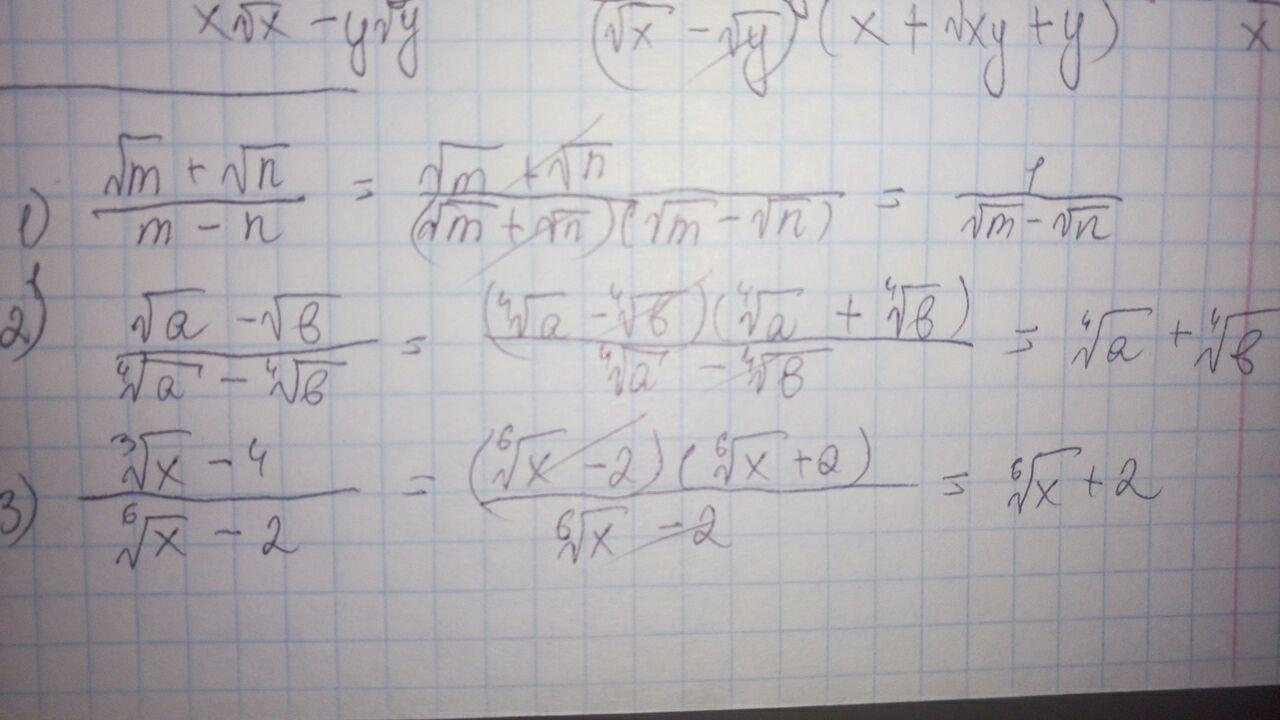 x√x - y√y (√x - √y)(x + √xy + y) x
1) (√m + √n)/(m - n) = (√m + √n)/((√m + √n)(√m - √n)) = 1/(√m - √n)
2) (√a - √в)/(⁴√a - ⁴√в) = ((⁴√a - ⁴√в)(⁴√a + ⁴√в))/(⁴√a - ⁴√в) = ⁴√a + ⁴√в
3) (³√x - 4)/(⁶√x - 2) = ((⁶√x - 2)(⁶√x + 2))/(⁶√x - 2) = ⁶√x + 2